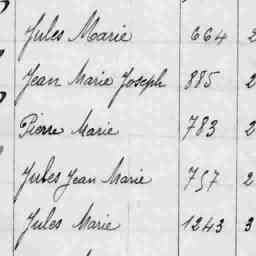 Jules Marie 664 2
Jean Marie Joseph 885 2
Pierre Marie 783 2
Jules Jean Marie 757 2
Jules Marie 1243 3